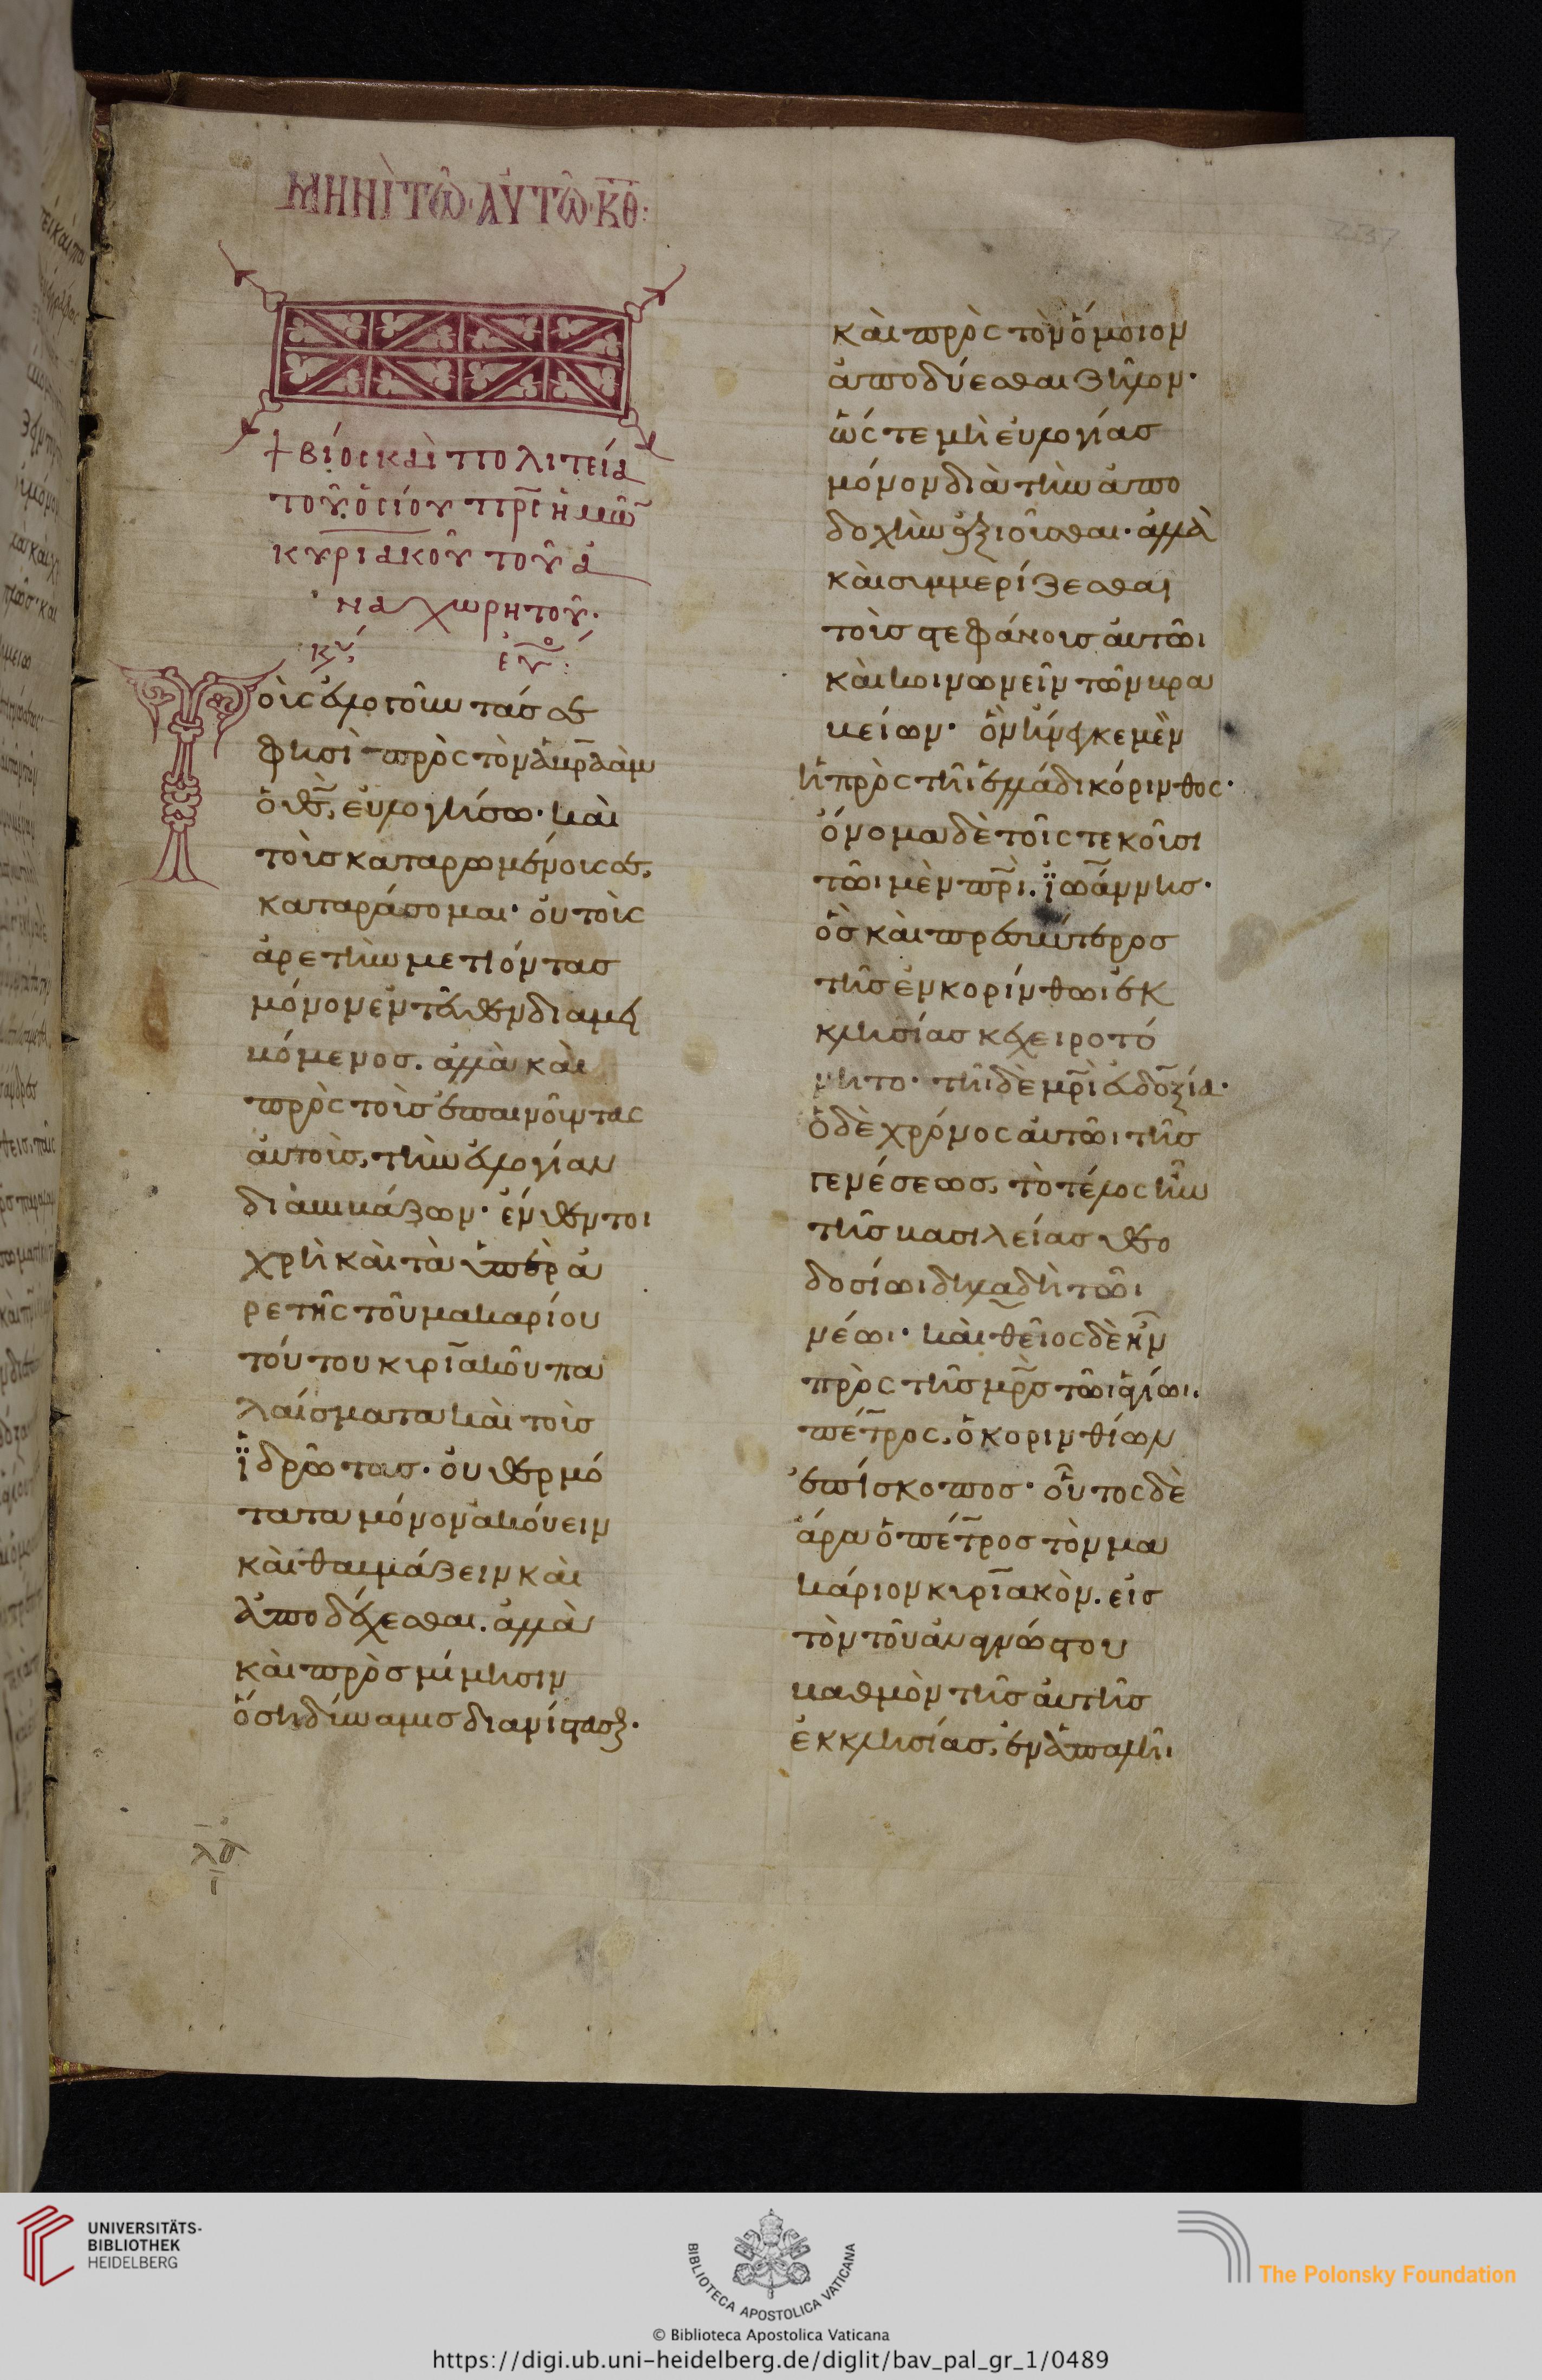 ΜΗΝΙ ΤΩ ΑΥΤΩ ΚΘ:
237
+ βίος καὶ πολιτεία
τοῦ ὁσίου πρς ἡμῶ
κυριακοῦ τοῦ ἀ
ναχωρητοῦ.
Τοὺς εὐλογοῦντάς σε
φησὶ πρὸς τὸν ἀβραὰμ
ὁ θς, εὐλογήσω· καὶ
τοὺς καταρωμένους σε,
καταράσομαι· οὐ τοὺς
ἀρετὴν μετιόντας
μόνον ἐντεῦθεν διαμει
βόμενος. ἀλλὰ καὶ
πρὸς τοὺς ἐπαινοῦντας
αὐτοὺς, τὴν εὐλογίαν
διαβιβάζων· ἐνθέν τοι
χρὴ καὶ τὰ ὑπὲρ ἀ
ρετῆς τοῦ μακαρίου
τούτου κυριακοῦ πα
λαίσματα καὶ τοὺς
ἱδρῶτας· οὐ θερμό
τατα μόνον ἀκούειν
καὶ θαυμάζειν καὶ
ἀποδέχεσθαι. ἀλλὰ
καὶ πρὸς μίμησιν
ὅση δύναμις διανίστασθ·
καὶ πρὸς τὸν ὅμοιον
ἀποδύεσθαι ζῆλον·
ὥστε μὴ εὐλογίας
μόνον διὰ τὴν ἀπο
δοχὴν ἀξιοῦσθαι· ἀλλὰ
καὶ συμμερίζεσθαι
τοὺς στεφάνους αὐτῶι
καὶ κοινωνεῖν τῶν βρα
βείων· ὃν ἤνεγκε μὲν
ἡ πρὸς τῆι ἑλλάδι κόρινθος·
ὄνομα δὲ τοῖς τεκοῦσι
τῶι μὲν πρὶ. ϊωάννης·
ὃς καὶ πρεσβύτερος
τῆς ἐν κορίνθωι ἐκ
κλησίας κεχειροτό
νητο· τῆι δὲ μρὶ εὐδοξία·
ὁ δὲ χρόνος αὐτῶι τῆς
γενέσεως, τὸ τέλος ἦν
τῆς βασιλείας θεο
δοσίωι δηλαδὴ τῶι
νέωι· καὶ θεῖος δὲ ἦν
πρὸς τῆς μρὸς τῶι ἁγίωι,
πέτρος, ὁ κορινθίων
ἐπίσκοπος· οὗτος δὲ
ἄρα ὁ πέτρος τὸν μα
κάριον κυριακὸν. εἰς
τὸν τοῦ ἀναγνώστου
βαθμὸν τῆς αὐτῆς
ἐκκλησίας, ἐν ἁπαλῆι
UNIVERSITÄTS-
BIBLIOTHEK
HEIDELBERG
BIBLIOTECA APOSTOLICA VATICANA
The Polonsky Foundation
© Biblioteca Apostolica Vaticana
https://digi.ub.uni-heidelberg.de/diglit/bav_pal_gr_1/0489